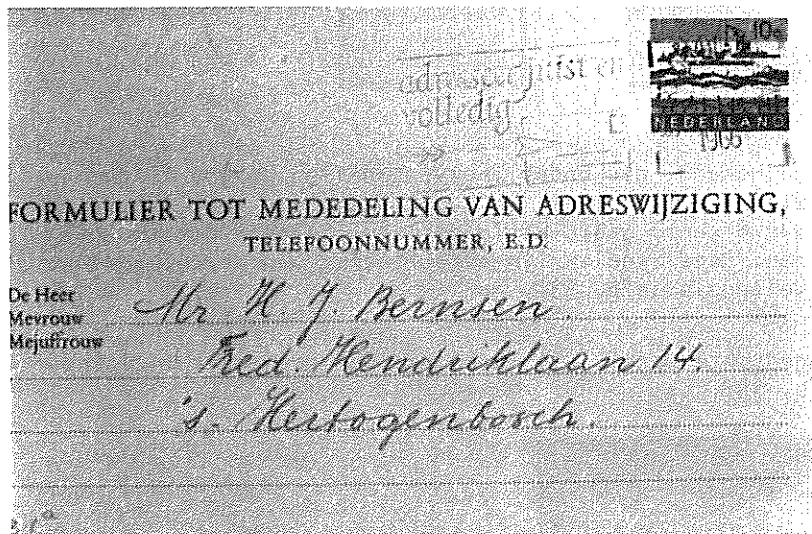 10c
adresseer juist en
volledig
NEDERLAND
1966
FORMULIER TOT MEDEDELING VAN ADRESWIJZIGING,
TELEFOONNUMMER, E.D.
De Heer
Mevrouw
Mejuffrouw
Mr H. J. Bernsen.
Fred. Hendriklaan 14.
's. Hertogenbosch.